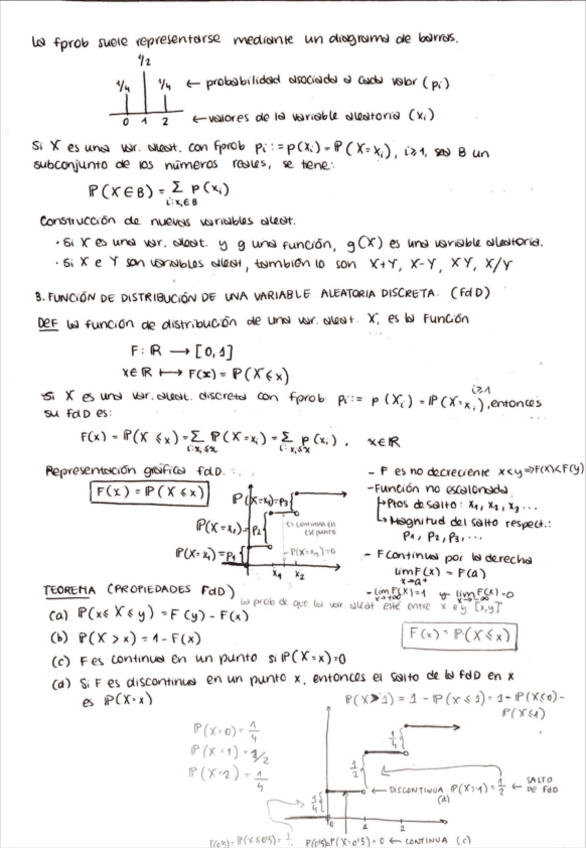 La fprob suele representarse mediante un diagrama de barras.
1/2
1/4 1/4 ← probabilidad asociada a cada valor (pi)
0 1 2 ← valores de la variable aleatoria (xi)
Si X es una var. aleat. con fprob pi := p(xi) = P(X=xi), i≥1, sea B un
subconjunto de los números reales, se tiene:
P(X∈B) = Σ p(xi)
i:xi∈B
Construcción de nuevas variables aleat.
· Si X es una var. aleat. y g una función, g(X) es una variable aleatoria.
· Si X e Y son variables aleat, también lo son X+Y, X-Y, XY, X/Y
3. FUNCIÓN DE DISTRIBUCIÓN DE UNA VARIABLE ALEATORIA DISCRETA. (FdD)
DEF La función de distribución de una var. aleat. X, es la Función
F: R → [0,1]
x∈R ↦ F(x) = P(X≤x)
Si X es una var. aleat. discreta con fprob pi := p(Xi) = P(X=xi), i≥1, entonces
su FdD es:
F(x) = P(X≤x) = Σ P(X=xi) = Σ p(xi), x∈R
i:xi≤x i:xi≤x
Representación gráfica FdD.
F(x) = P(X≤x)
P(X=x3)=p3
P(X=x2)=p2
P(X=x1)=p1
es continua en
ese punto
x1 x2
- F es no decreciente x<y ⇒ F(x)<F(y)
- Función no escalonada
↳ Ptos de salto: x1, x2, x3...
↳ Magnitud del salto respect.:
p1, p2, p3, ...
- F continua por la derecha
lim F(x) = F(a)
x→a+
- lim F(x)=1 y lim F(x)=0
TEOREMA (PROPIEDADES FdD)
la prob de que la var. aleat esté entre x e y [x,y]
(a) P(x≤X≤y) = F(y) - F(x)
(b) P(X > x) = 1 - F(x)
F(x) = P(X≤x)
(c) F es continua en un punto si P(X=x)=0
(d) Si F es discontinua en un punto x, entonces el salto de la FdD en x
es P(X=x)
P(X>1) = 1 - P(X≤1) = 1 -
P(X=0) = 1/4
P(X=1) = 1/2
P(X=2) = 1/4
1/4
1/2
1/4
← DISCONTINUA P(X=1) = 1/2 ← SALTO DE FdD
(d)
0 1 2
P(X=0'5) = 0 ← CONTINUA (c)